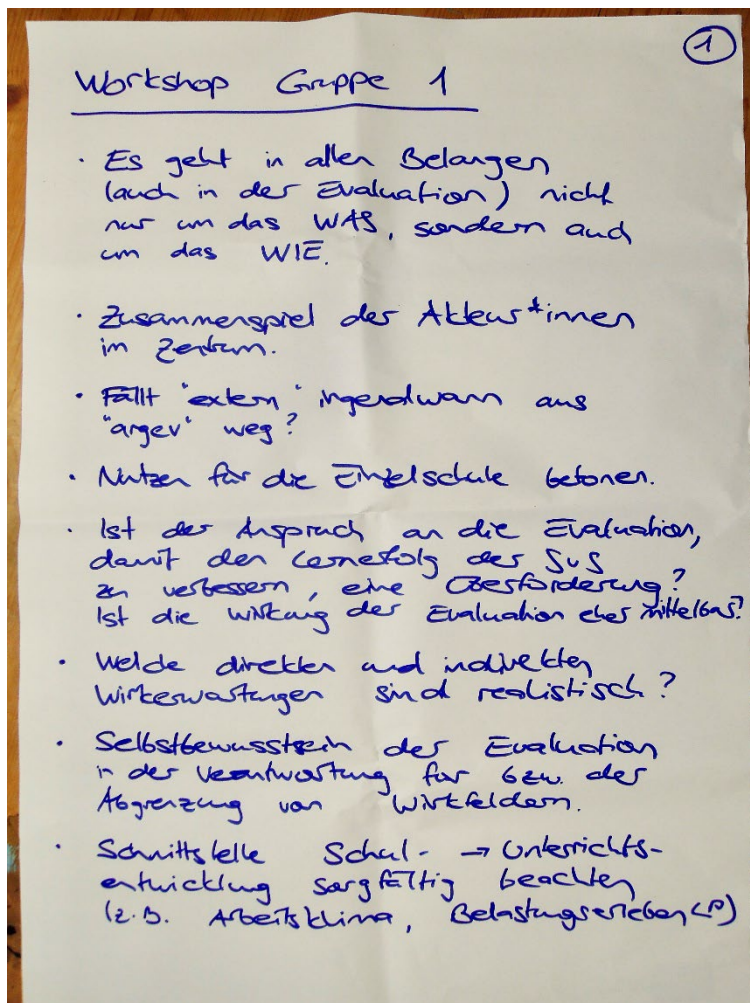 1
Workshop Gruppe 1
· Es geht in allen Belangen
(auch in der Evaluation) nicht
nur um das WAS, sondern auch
um das WIE.
· Zusammenspiel der Akteur*innen
im Zentrum.
· Fällt "extern" irgendwann aus
"argev" weg?
· Nutzen für die Einzelschule betonen.
· Ist der Anspruch an die Evaluation,
damit den Lernerfolg der SuS
zu verbessern, eine Überforderung?
Ist die Wirkung der Evaluation eher mittelbar?
· Welche direkten und indirekten
Wirkerwartungen sind realistisch?
· Selbstbewusstsein der Evaluation
in der Verantwortung für bzw. der
Abgrenzung von Wirkfeldern.
· Schnittstelle Schul- → Unterrichts-
entwicklung sorgfältig beachten
(z.B. Arbeitsklima, Belastungserleben LP)